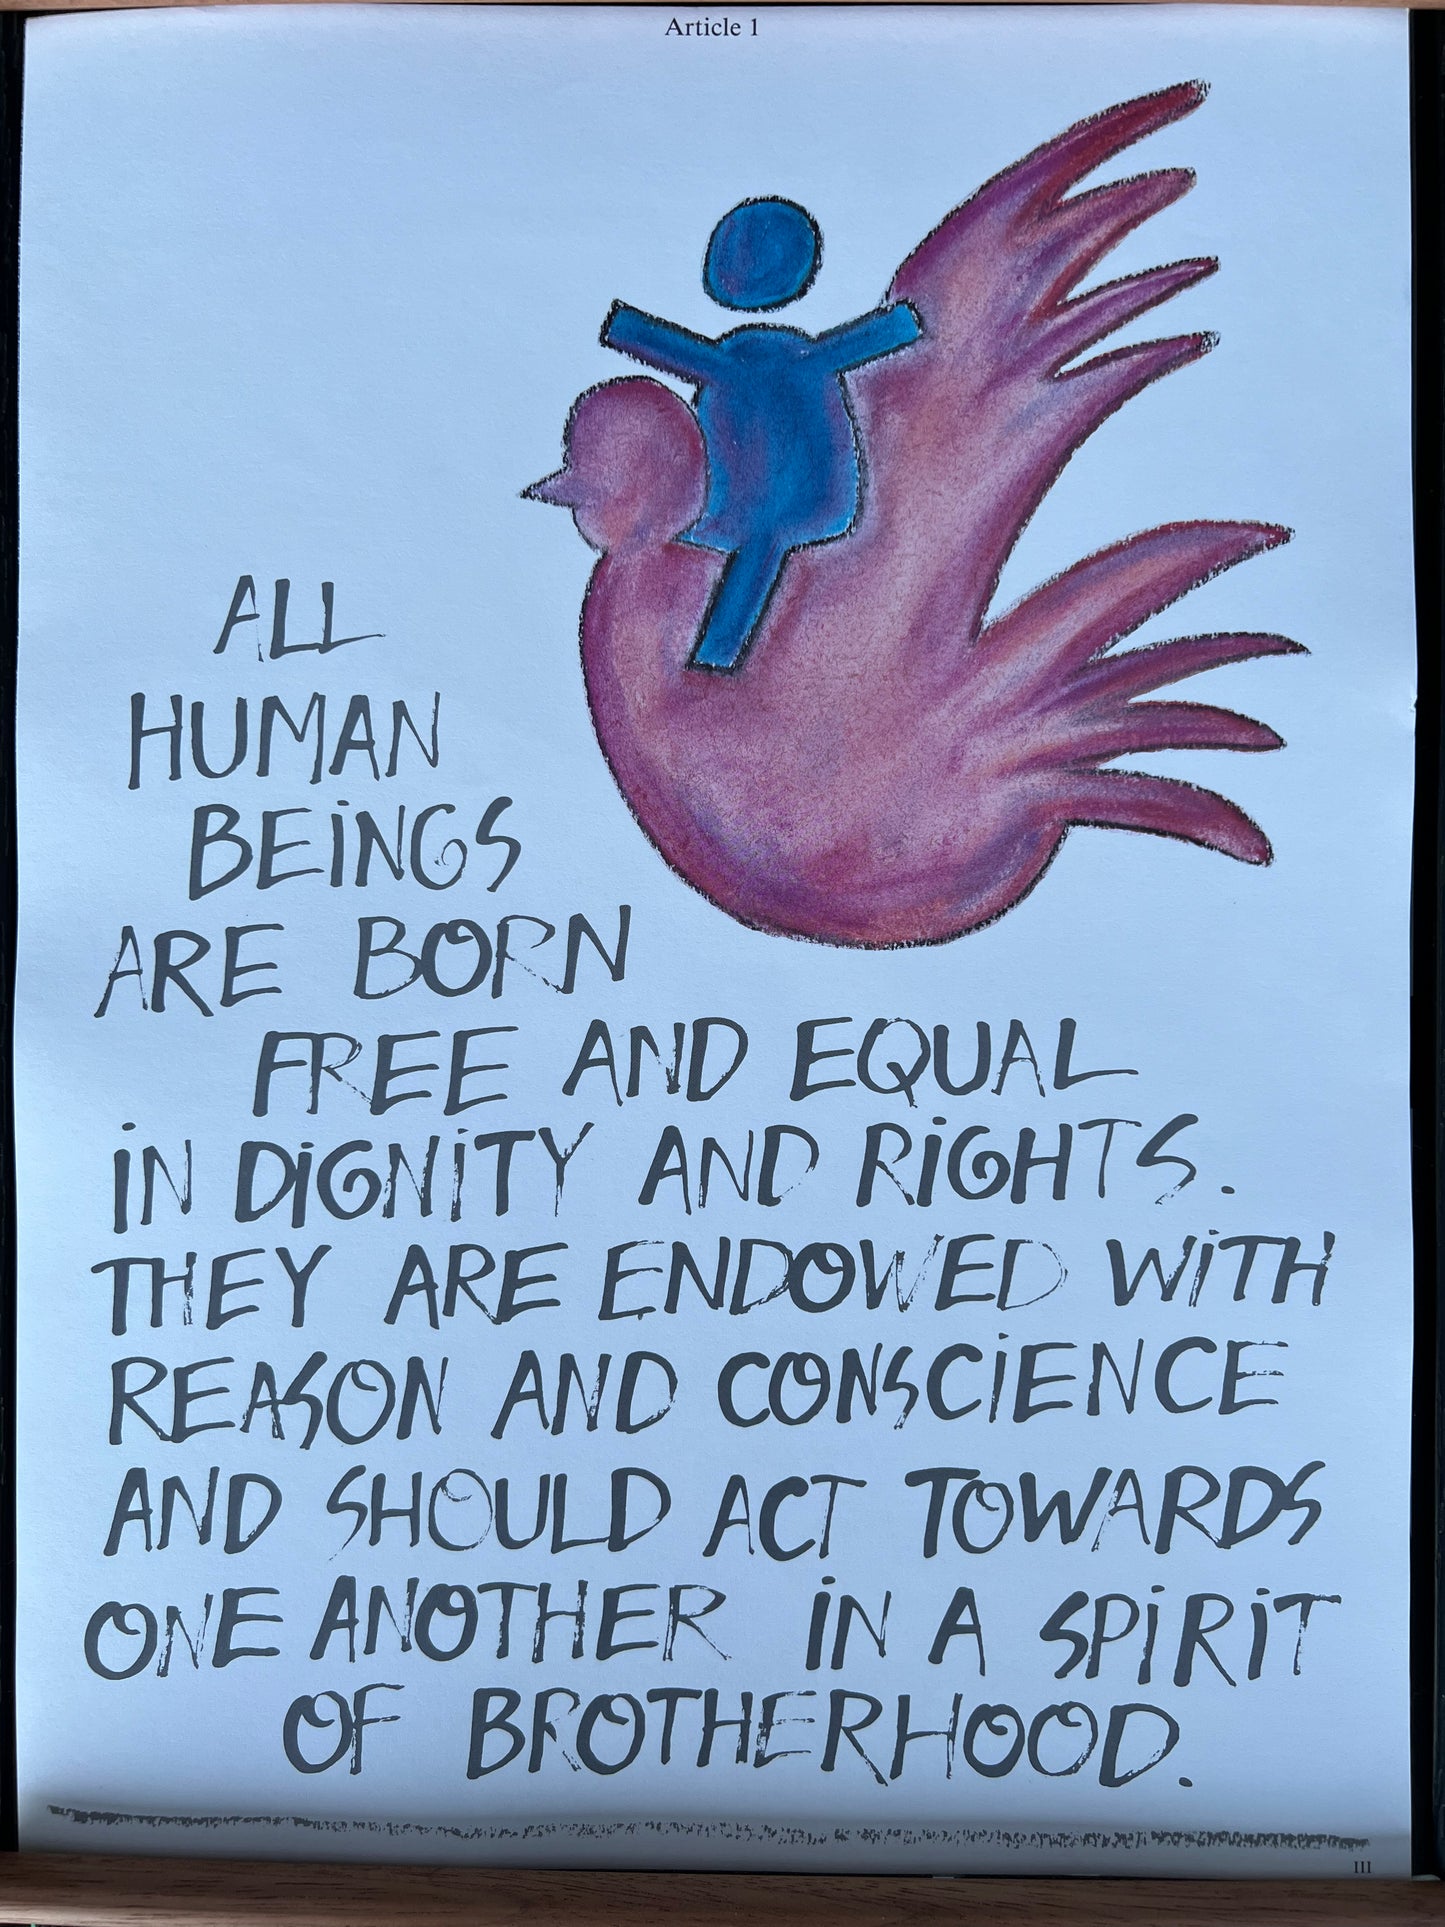 Article 1
ALL
HUMAN
BEiNGS
ARE BORN
FREE AND EQUAL
iN DiGNiTY AND RiGHTS.
THEY ARE ENDOWED WiTH
REASON AND CONSCiENCE
AND SHOULD ACT TOWARDS
ONE ANOTHER iN A SPiRiT
OF BROTHERHOOD.
III